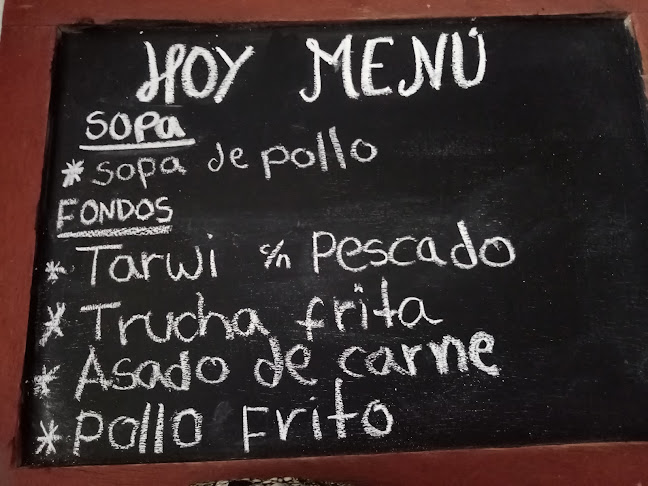 HOY MENÚ
SOPA
* sopa de pollo
FONDOS
* Tarwi c/n Pescado
* Trucha frita
* Asado de carne
* pollo Frito